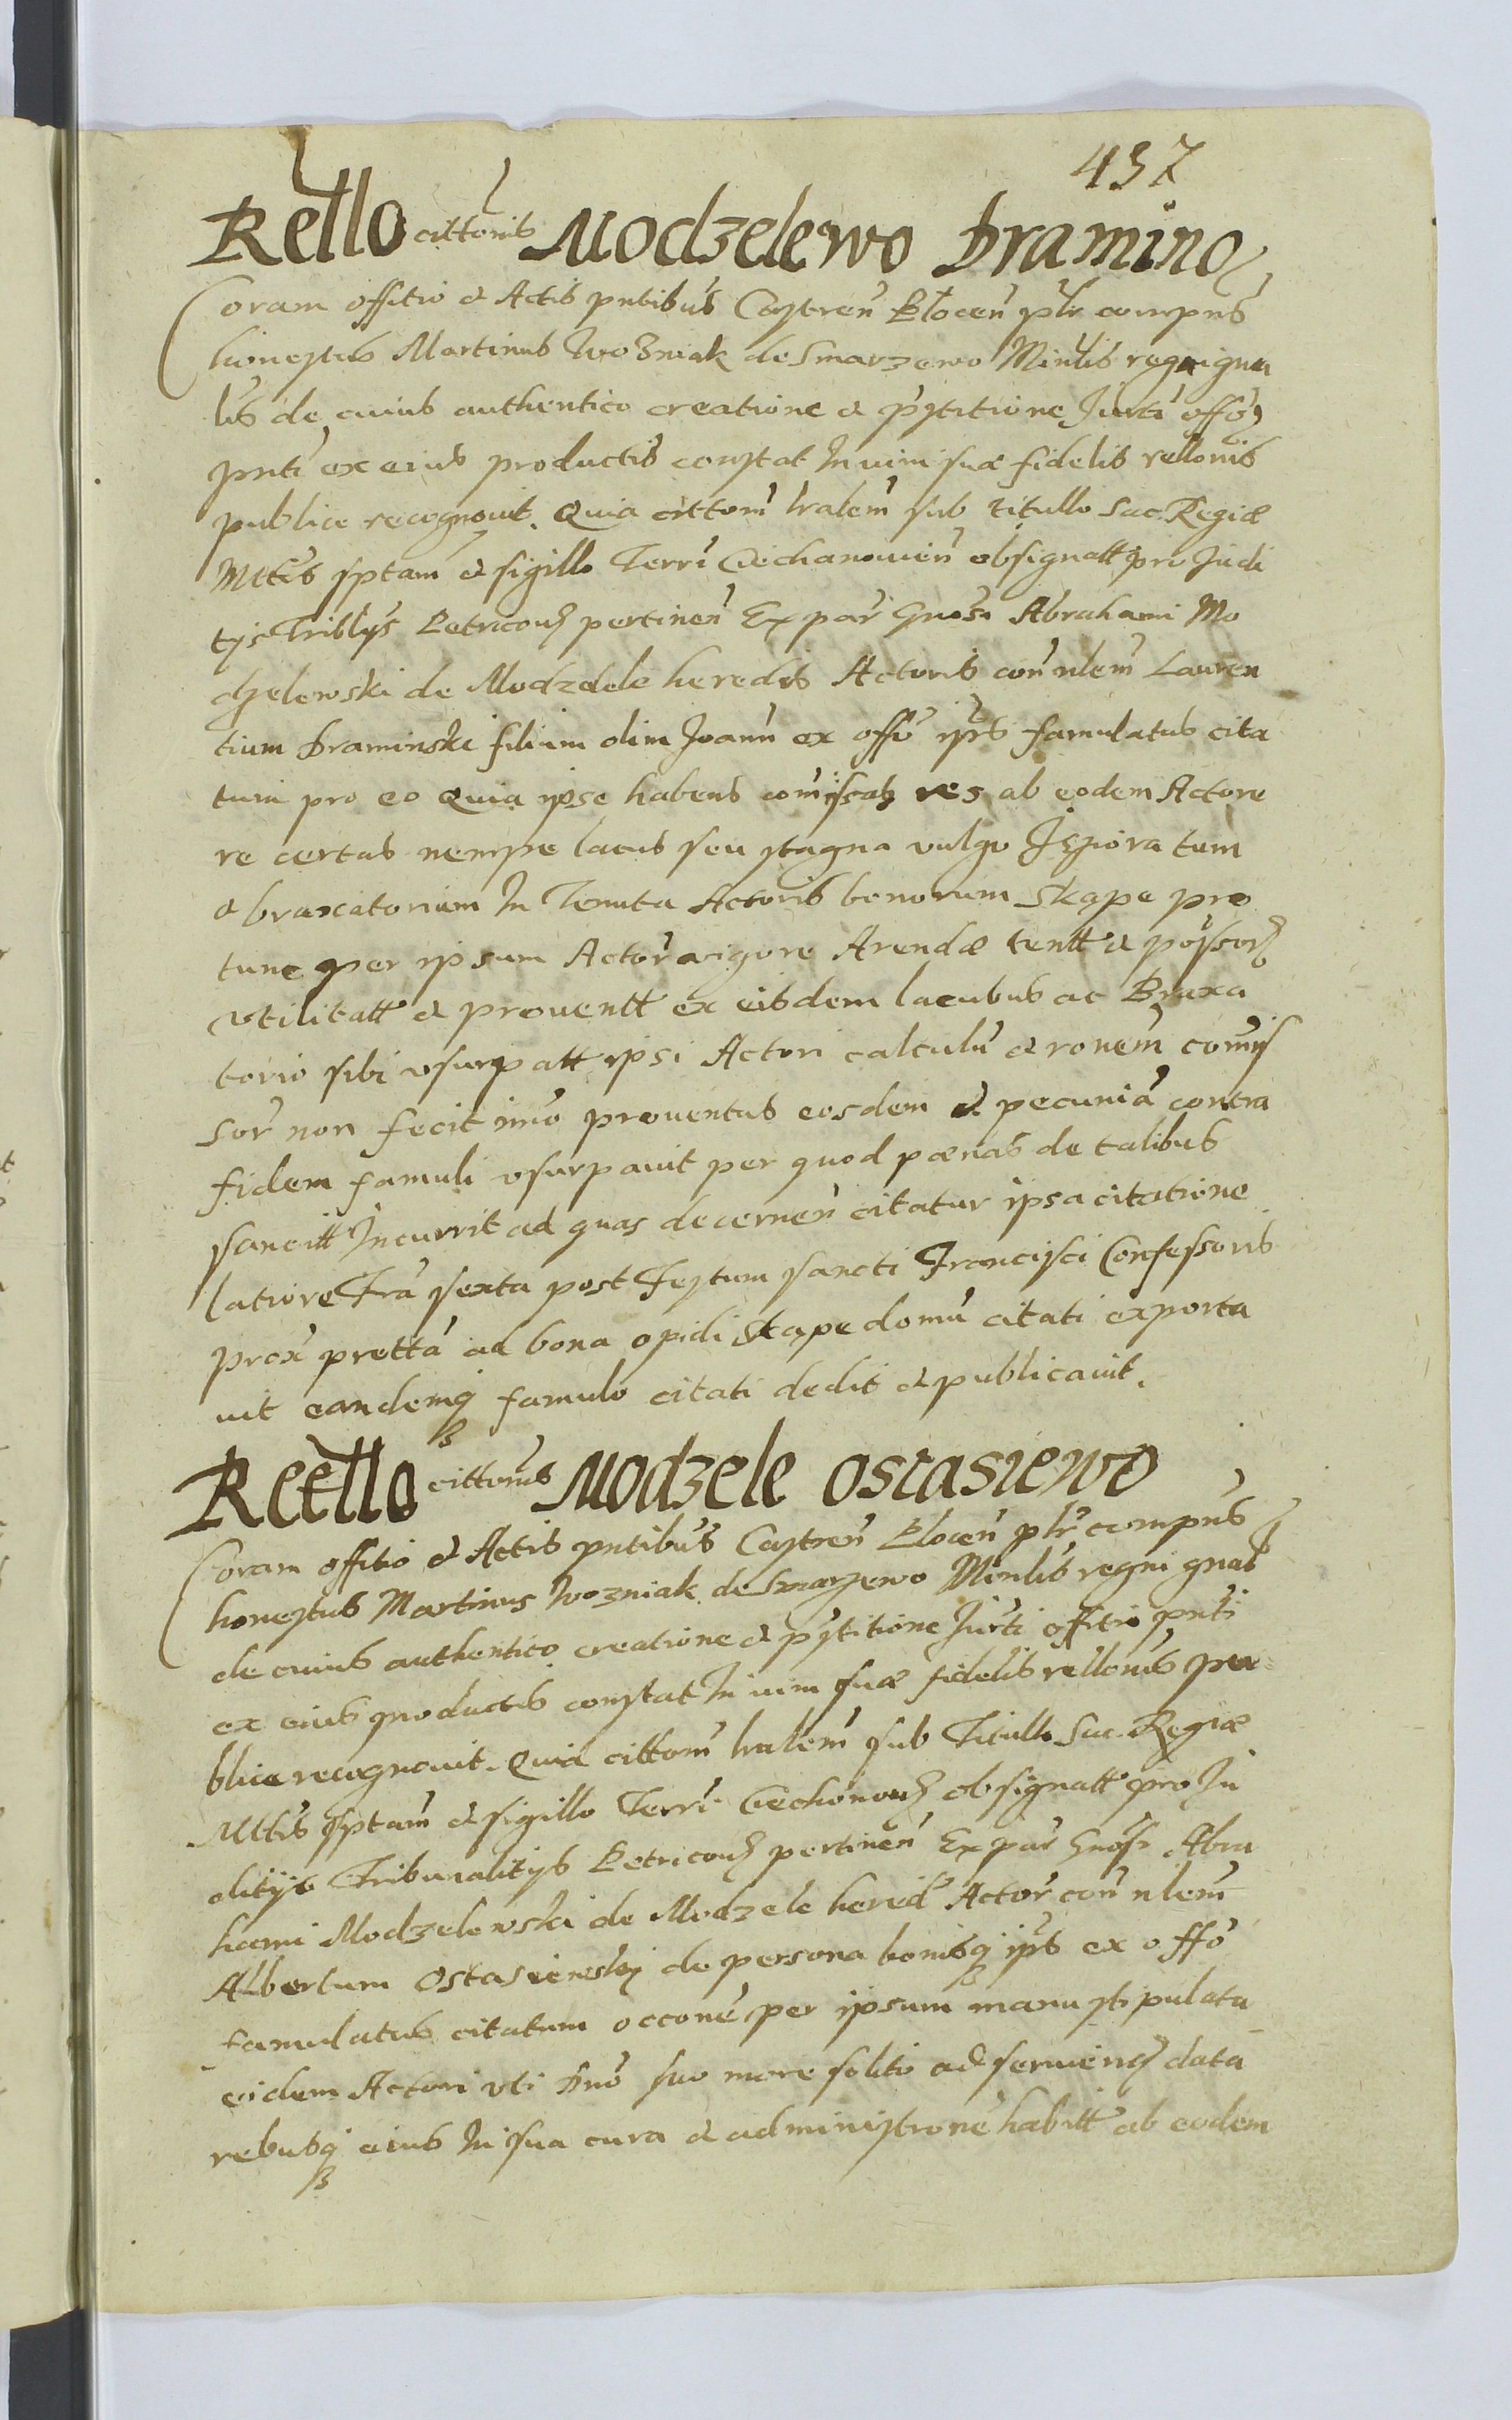 437
Rello cittonis Modzelewo Dramino
Coram offitio & Actis pntibus Castren Plocen plr compns
honestus Martinus Wozniak de Smarzewo Minlis regni gna
lis de cuius authentico creatione & pstitione Jurti offo
pnti ex eius productis constat In vim suæ fidelis rellonis
publice recognovit. Quia cittom lralem sub titullo Sac. Regiæ
Mttis sptam & sigillo Terri Ciechanovien obsignatt pro Judi
tys Triblijs Petricou pertinen Ex par Gnosi Abrahami Mo
dzelewski de Modzdele heredis Actoris con nlem Lauren
tium Draminski filium olim Joann ex offo ipis famulatus cita
tum pro eo Quia ipse habens comissas res ab eodem Actore
re certas nempe lacus seu stagna vulgo Jeziora tum
& braxatorium In Tenuta Actoris bonorum Skape pro
tunc per ipsum Actor vigore Arendæ tentt & possor
vtilitatt & proventt ex eisdem lacubus ac Braxa
torio sibi vsurpatt ipsi Actori calculu & ronem comis
sor non fecit imo proventus eosdem & pecunia contra
fidem famuli vsurpavit per quod pænas de talibus
sancitt Incurrit ad quas decernen citatur ipsa citatione
latiore Fra sexta post Festum sancti Francisci Confessoris
prox pretta ad bona opidi Skape domu citati exporta
vit eandemq famulo citati dedit & publicavit.
Rello cittonis Modzele Ostasiewo
Coram offitio & Actis pntibus Castren Plocen plr compns
honestus Martinus Wozniak de Smarzewo Minlis regni gnal
de cuius authentico creatione & pstitione Jurti offitio pnti
ex eius productis constat In vim suæ fidelis rellonis pu
blice recognovit. Quia cittom lralem sub Titullo Sac. Regiæ
Mttis sptam & sigillo Terri Ciechonou obsignatt pro Ju
ditijs Tribunalitijs Petricou pertinen Ex par Gnosi Abra
hami Modzelewski de Modzele hered Actor con nlem
Albertum Ostasiewski de persona bonisq ipis ex offo
famulatus citatum occone per ipsum manu stipulata
eidem Actori vti Dno suo more solito ad servien data
rebusq eius In sua cura & administrone habitt ab eodem